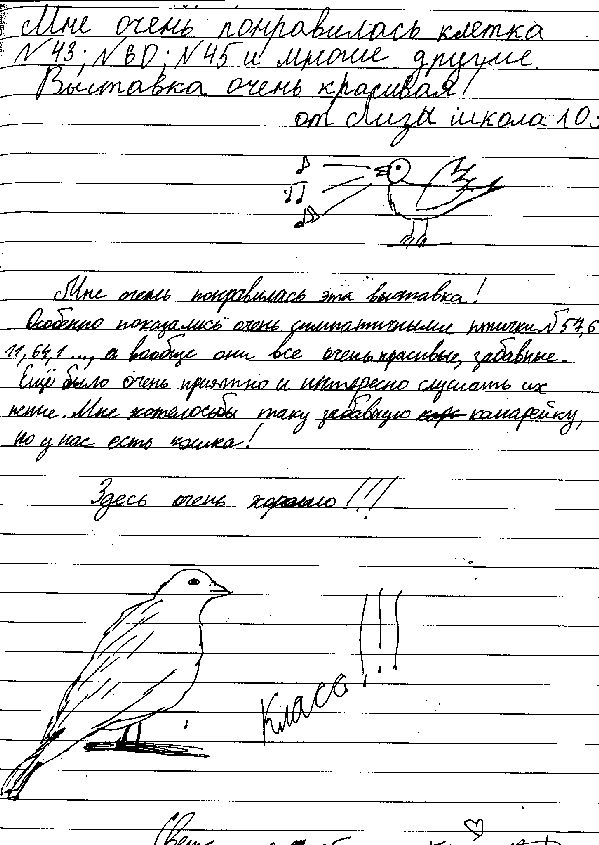 Мне очень понравилась клетка
№43; №60; №45 и многие другие.
Выставка очень красивая!
от Лизы школа 10.
Мне очень понравилась эта выставка!
Особенно показались очень симпатичными птички №57, 6
11, 64, 1 ..., а вообще они все очень красивые, забавные.
Ещё было очень приятно и интересно слушать их
пение. Мне хотелось бы таку забавную канарейку,
но у нас есть кошка!
Здесь очень хорошо!!!
Класс!!!